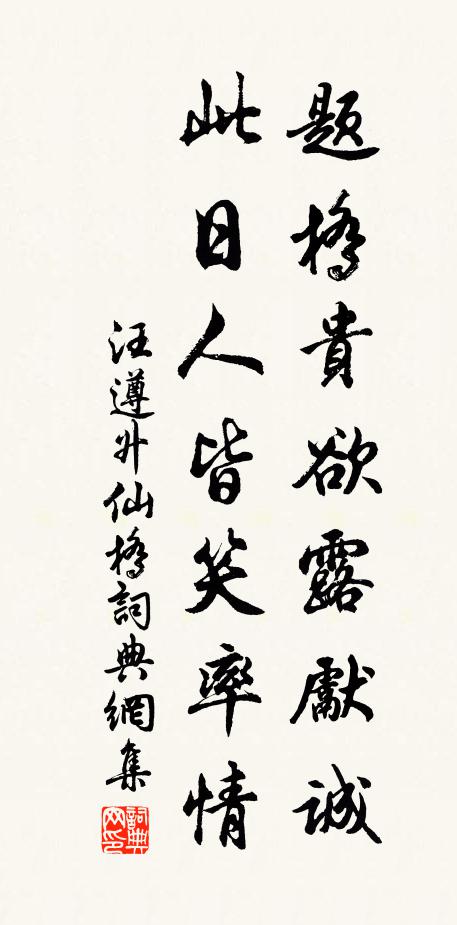 題橋貴欲露獻誠
此日人皆笑率情
汪遵升仙橋詞典網集
詞典網印